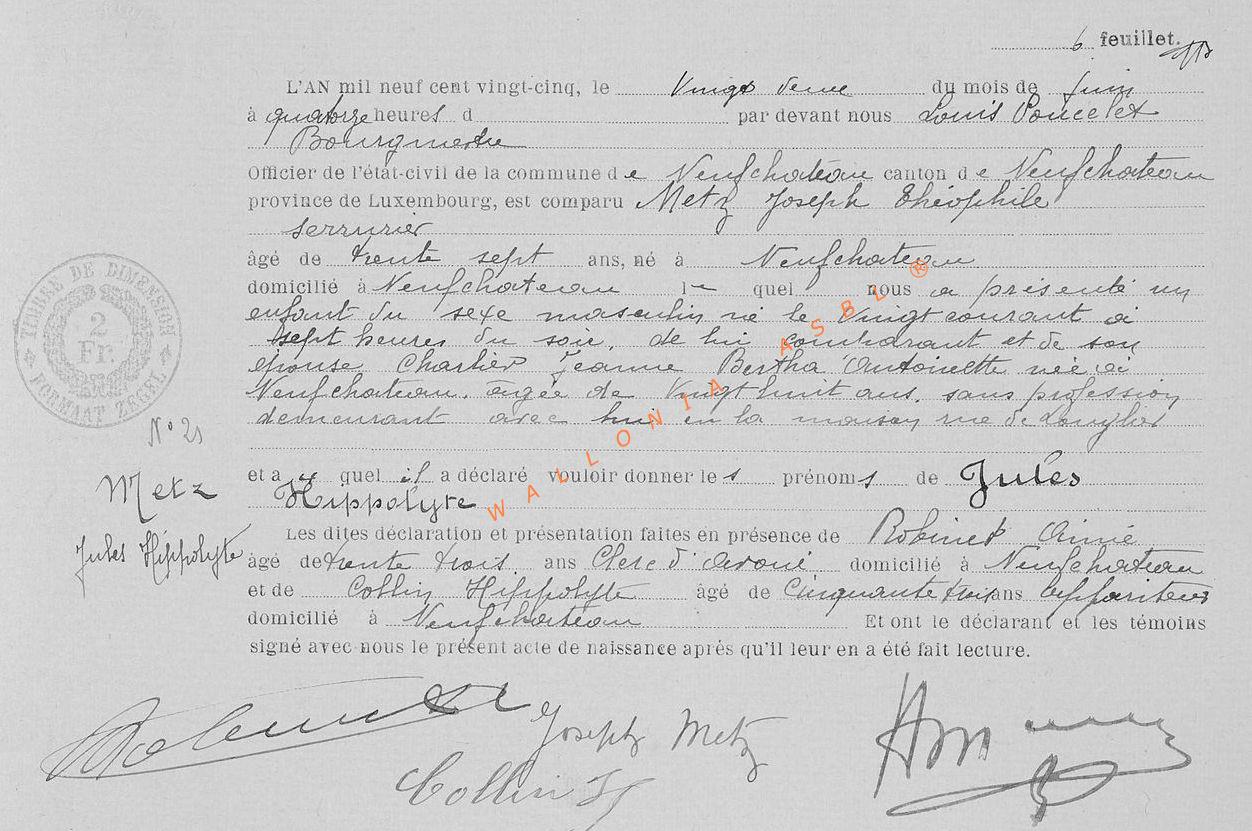 6 feuillet.
L'AN mil neuf cent vingt-cinq, le Vingt deux du mois de Juin
à quatorze heures d par devant nous Louis Poncelet
Bourgmestre
Officier de l'état-civil de la commune de Neufchateau canton de Neufchateau
province de Luxembourg, est comparu Metz Joseph Théophile
serrurier
âgé de trente sept ans, né à Neufchateau
domicilié à Neufchateau le quel nous a présenté un
enfant du sexe masculin né le vingt courant à
sept heures du soir, de lui comparant et de son
épouse Charlier Jeanne Bertha Antoinette née à
Neufchateau, âgée de vingt huit ans, sans profession
demeurant avec lui en sa maison rue de Longlier
et au quel il a déclaré vouloir donner les prénoms de Jules
Hippolyte
Les dites déclaration et présentation faites en présence de Robinet Aimé
âgé de trente trois ans Clerc d'avoué domicilié à Neufchateau
et de Collin Hippolyte âgé de Cinquante trois ans appariteur
domicilié à Neufchateau Et ont le déclarant et les témoins
signé avec nous le présent acte de naissance après qu'il leur en a été fait lecture.
TIMBRE DE DIMENSION
2
Fr.
FORMAAT ZEGEL
N° 21
Metz
Jules Hippolyte
WALLONIA ASBL ®
Joseph Metz
Collin H